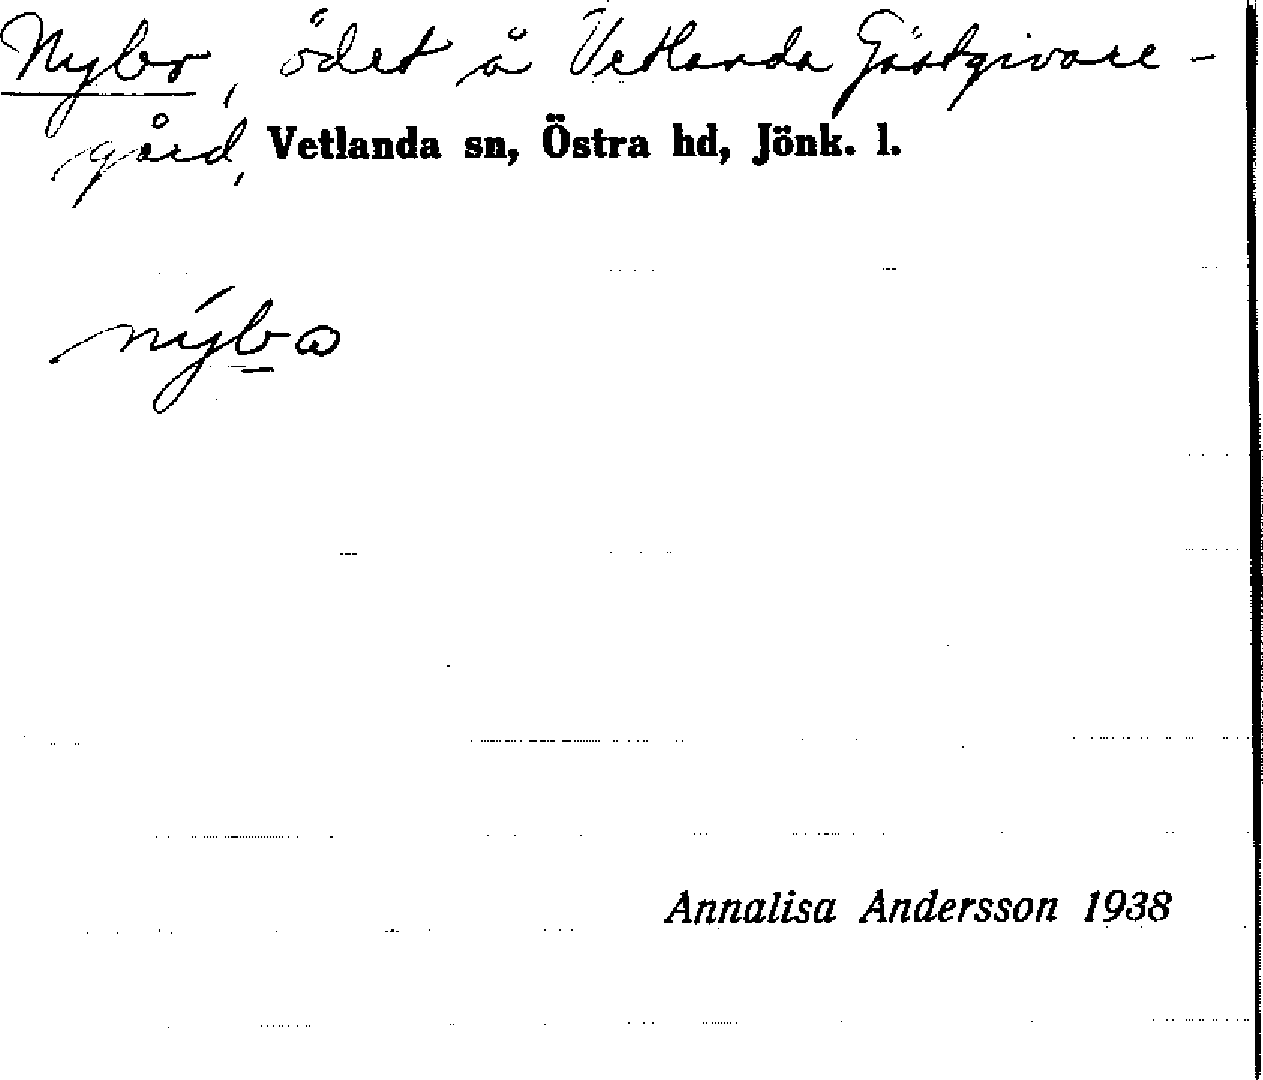 Nybo, ödet å Vetlanda Gästgivare-
gård, Vetlanda sn, Östra hd, Jönk. l.
Annalisa Andersson 1938